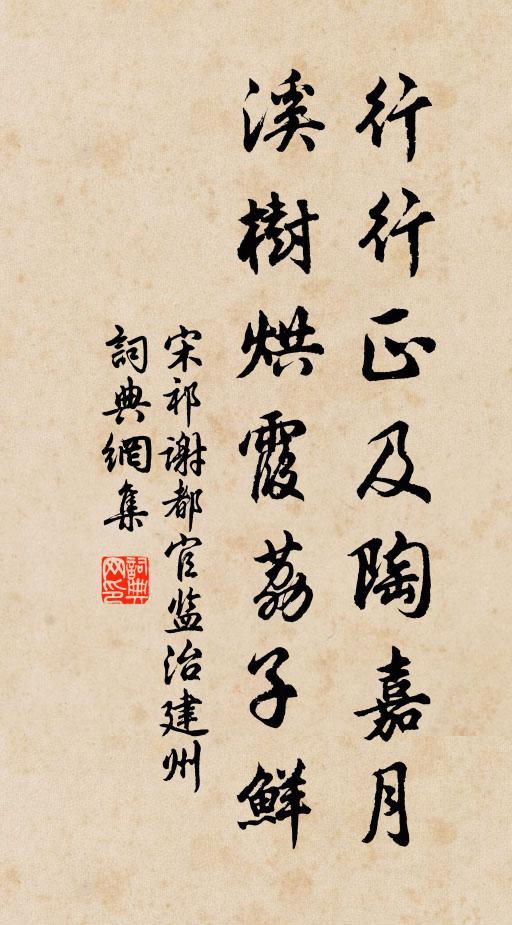 行行正及陶嘉月
溪樹烘霞荔子鮮
宋祁谢都官监治建州
詞典網集
詞典网印